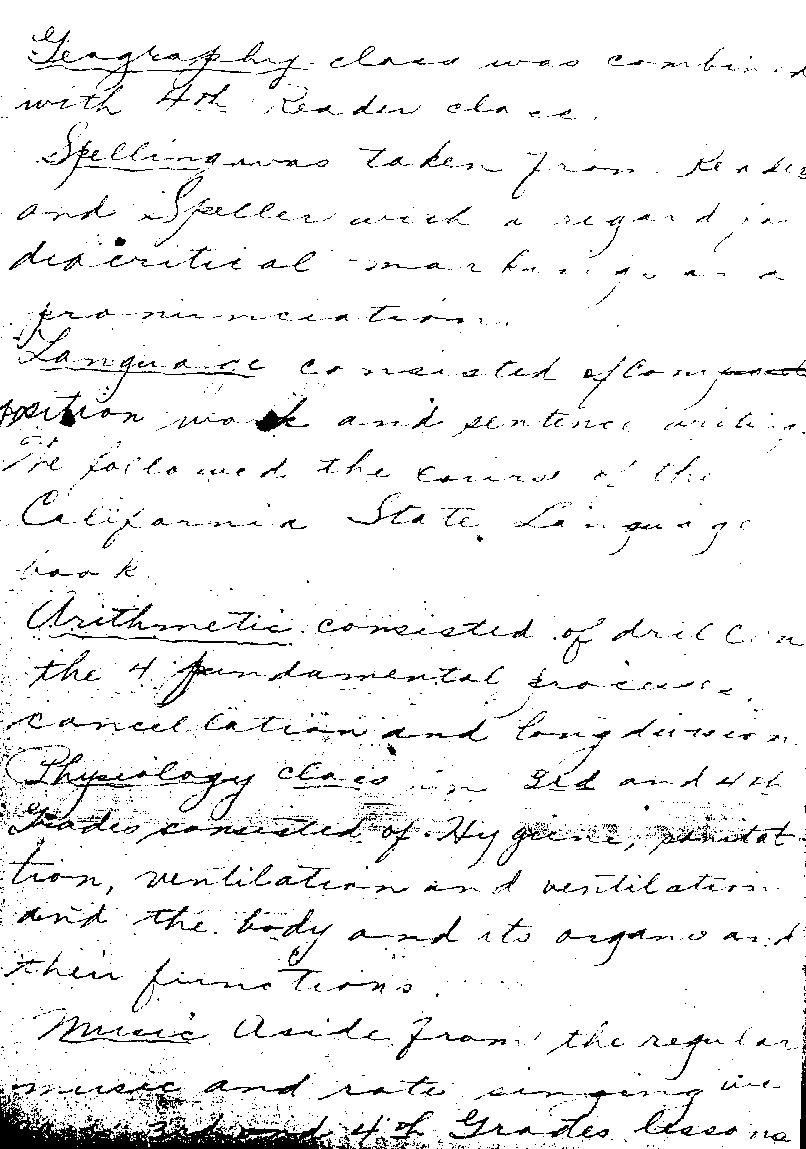 Geography class was combined
with 4th Reader class.
Spelling was taken from Reader
and Speller with a regard in
diacritical markings and
pronunciation.
Language consisted of Com
position work and sentence writing.
We followed the course of the
California State Language
book.
Arithmetic consisted of drill on
the 4 fundamental processes,
cancellation and long division.
Physiology class in 3rd and 4th
Grades consisted of Hygiene, sanitat-
tion, ventilation and ventilation
and the body and its organs and
their functions.
Music Aside from the regular
music and rote singing we
3rd and 4th Grades lessons